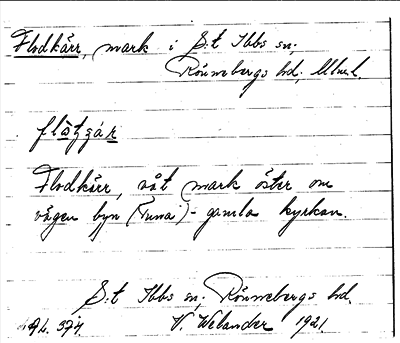 Flodkärr, mark i S:t Ibbs sn;
Rönnebergs hd, Mlm l.
flo̱tẕá̱ṟ
Flodkärr, våt mark öster om
vägen byn (Tuna) - gamla kyrkan.
S:t Ibbs sn; Rönnebergs hd.
AL. 374. V. Welander 1921.